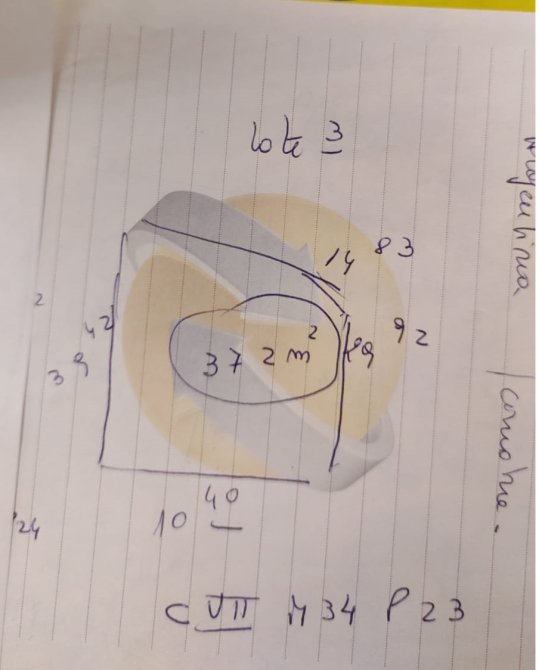 lote 3
14 83
92
372 m²
39 42
2
10 40
24
C VII M 34 P 23
Argentina